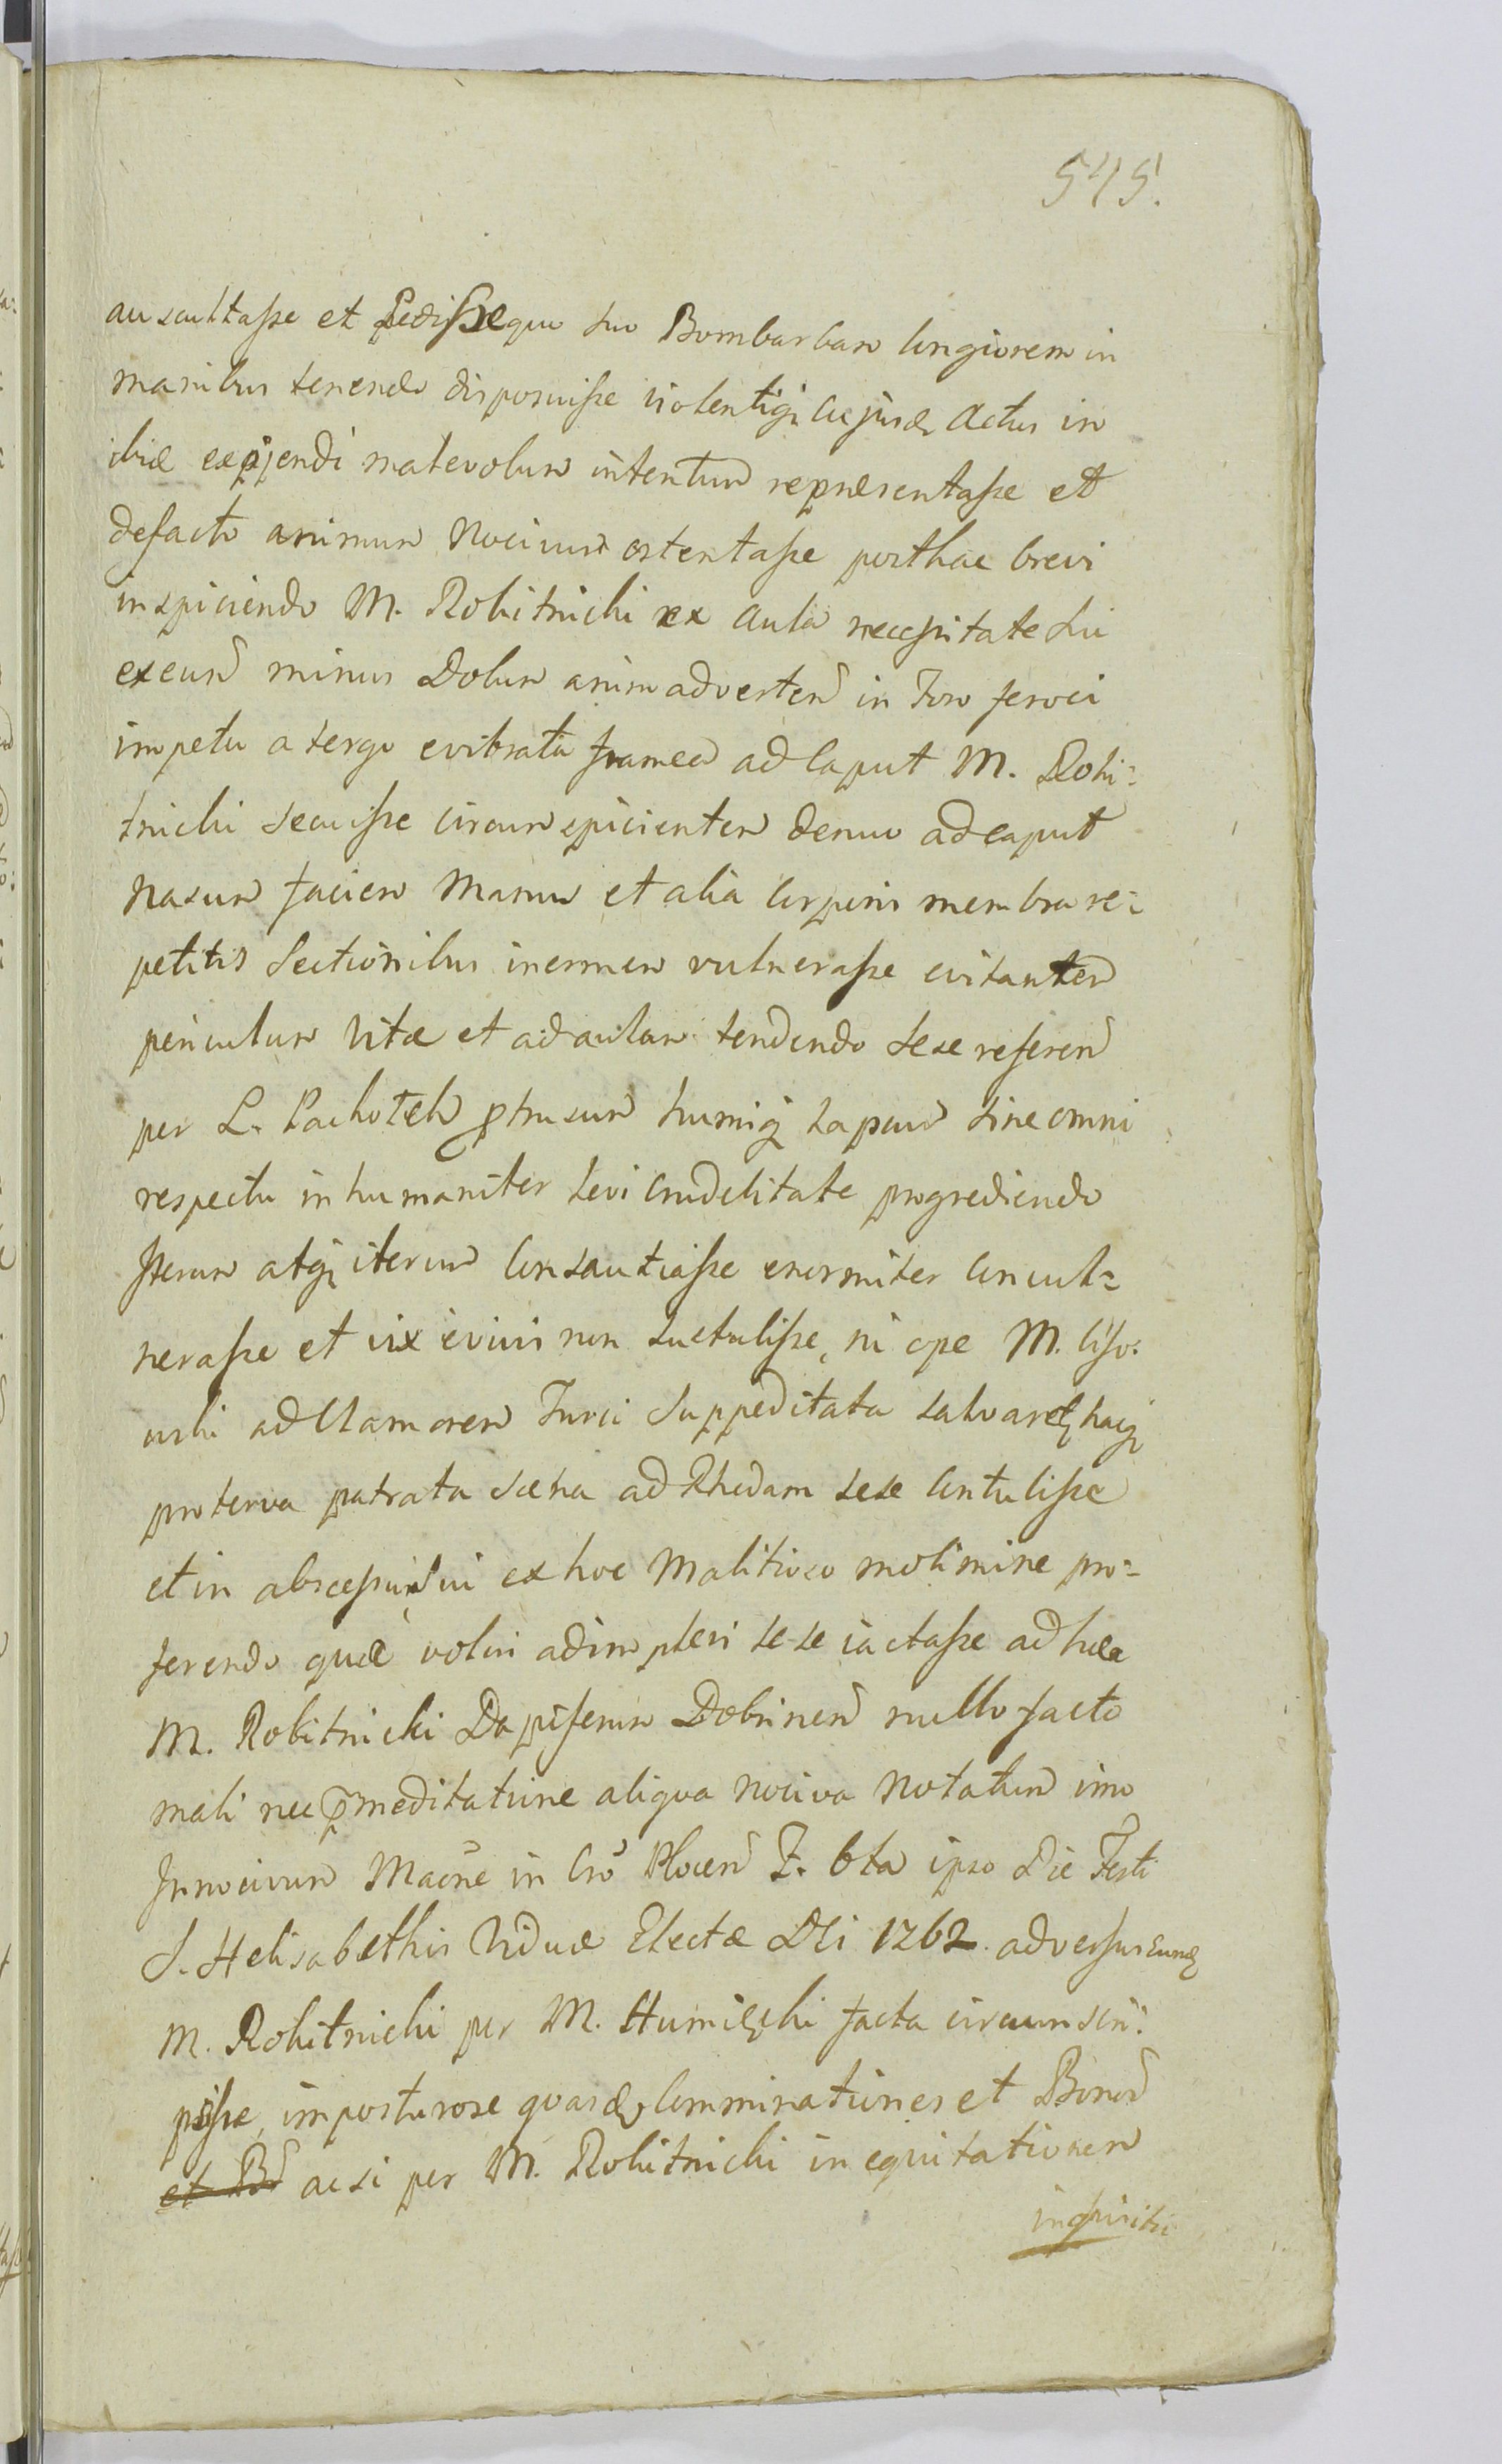 545.
auscultasse et Pedissequo suo Bombardam longiorem in
manibus tenendo disposuisse violentiq cujusd Actus in
ibid exqendi malevolum intentum repraesentasse et
defacto animum Nocivum ostentasse posthac brevi
inspiciendo M. Rokitnicki ex Aula necessitate sui
exeund minus Dolum animadverten in Foro feroci
impetu a tergo evibrata framea ad Caput M. Roki=
tnicki secuisse circumspicientem denuo ad caput
Nasum faciem Manum et alia Corporis membra re=
petitis Sectionibus inermem vulnerasse evitantem
periculum Vitae et ad aulam tendendo sese referen
per L. Pachołek ptrusum humiq lapsum sine omni
respectu inhumaniter sevi Crudelitate progrediendo
Iterum atq iterum Consautiasse enormiter Convul=
nerasse et vix e vivis non sustulisse, ni ope M.
ad Clamorem Turci Suppeditata salvaret haq
proterva patrata scena ad Rhedam sese Contulisse
et in abscessu sui ex hoc Malitioso molimine pro=
ferendo quae volui adimplevi sese iactasse ad haec
M. Rokitnicki Dapiferum Dobrinen nullo facto
mali nec pmeditatione aliqua Nociva Notatum imo
Innocivum Maōne in Crō Plocen F. 6ta ipso Die Festi
S. Helisabethis Viduae Electae DEi 1762. adversus Eund
M. Rokitnicki per M. Humięcki facta circumscri=
psisse, imposturose quasd Comminationes et Bonor
et B ac si per M. Rokitnicki inequitationem